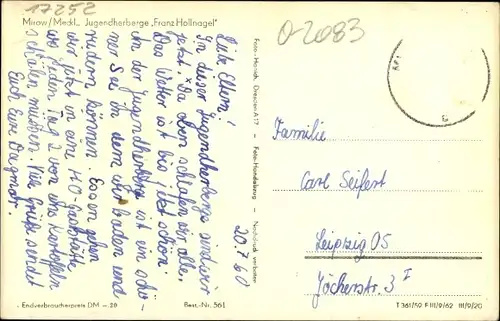 17252
Mirow/Meckl., Jugendherberge „Franz Hollnagel"
0-2083
Liebe Eltern!
In dieser Jugendherberge sind wir
jetzt. Da oben schlafen wir alle.
Das Wetter ist bis jetzt schön.
In der Jugendherberge ist ein schö-
ner See in dem wir baden und
rudern können. Essen gehen
wir jetzt in eine HO-Gaststätte
wo jeden Tag 2 von uns Kartoffeln
schälen müssen. Viele Grüße sendet
Euch Eure Dagmar.
20.7.60
Foto-Handabzug – Nachdruck verboten
Familie
Carl Seifert
Leipzig O5
Jöcherstr. 3 I
Endverbraucherpreis DM –.20
Best.-Nr. 561
T 361/59 F III/9/62 III/9/20